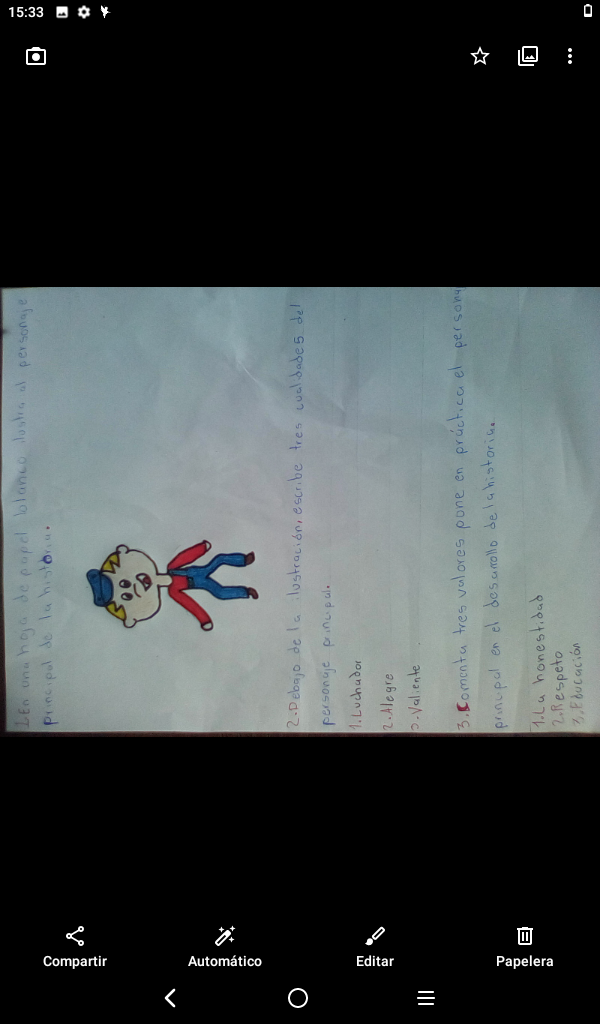 15:33
1. En una hoja de papel blanco ilustra al personaje
principal de la historia.
2. Debajo de la ilustración, escribe tres cualidades del
personaje principal.
1. Luchador
2. Alegre
3. Valiente
3. Comenta tres valores pone en práctica el
principal en el desarrollo de la historia.
1. La honestidad
2. Respeto
3. Educación
Compartir
Automático
Editar
Papelera